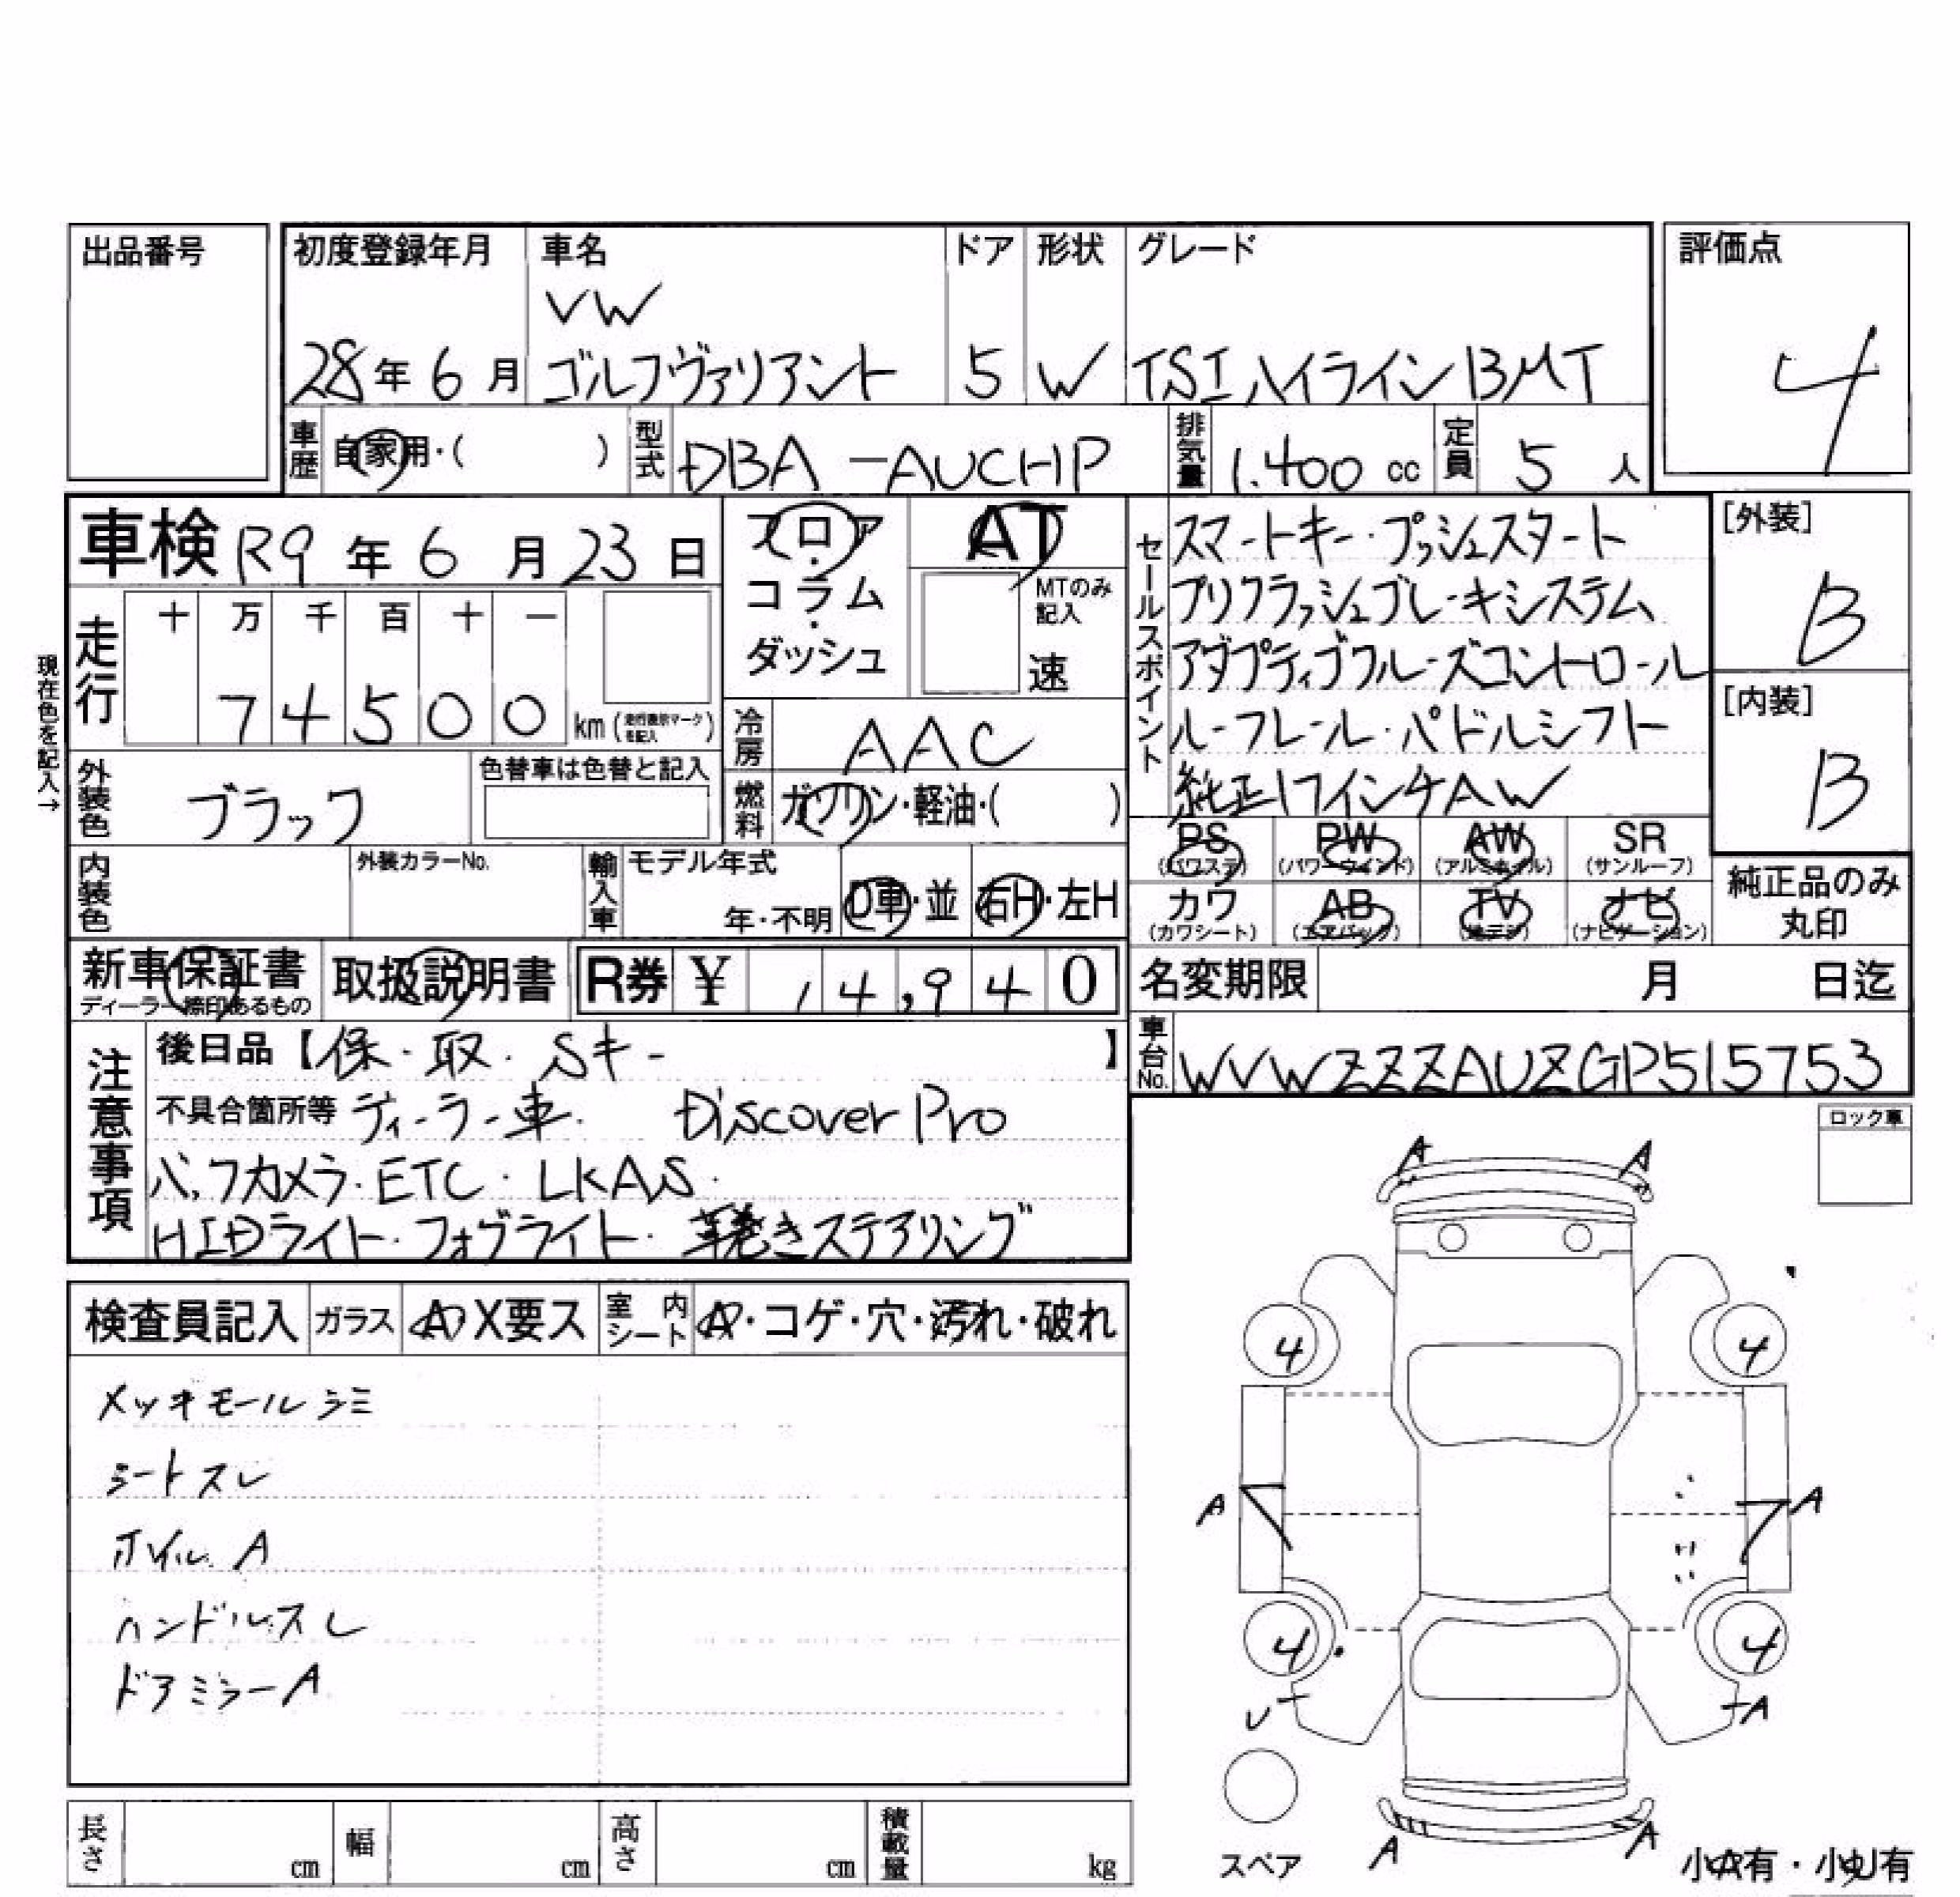 出品番号
初度登録年月 車名 ドア 形状 グレード 評価点
VW
28年6月 ゴルフヴァリアント 5 W TSIハイライン BMT 4
車歴 自家用・( ) 型式 DBA-AUCHP 排気量 1.400cc 定員 5人
車検 R9年6月23日
フロア・コラム・ダッシュ
AT
MTのみ記入
速
セールスポイント
スマートキー・プッシュスタート
プリクラッシュブレーキシステム
アダプティブクルーズコントロール
ルーフレール・パドルシフト
純正17インチAW
[外装]
B
[内装]
B
現在色を記入→
走行 十 万 千 百 十 一
7 4 5 0 0 km(走行表示マークを記入)
冷房 AAC
外装色 ブラック 色替車は色替と記入
燃料 ガソリン・軽油・( )
PS (パワステ) PW (パワーウインド) AW (アルミホイル) SR (サンルーフ)
カワ (カワシート) AB (エアバック) TV (地デジ) ナビ (ナビゲーション)
純正品のみ丸印
内装色 外装カラーNo. 輸入車 モデル年式 年・不明 D車・並 右H・左H
新車保証書 取扱説明書 R券 ¥ 14,940
ディーラー締印あるもの
名変期限 月 日迄
車台No. WVWZZZAUZGP515753
注意事項
後日品【保・取・Sキー】
不具合箇所等 ディーラー車. Discover Pro
バックカメラ・ETC・LKAS・
HIDライト・フォグライト・革巻きステアリング
ロック車
検査員記入 ガラス A・X要ス 室内シート A・コゲ・穴・汚れ・破れ
メッキモールシミ
シートスレ
ホイル A
ハンドルスレ
ドアミラーA
A A
4 4
A A
4 4
U A
スペア
A A
小A有・小U有
長さ cm 幅 cm 高さ cm 積載量 kg